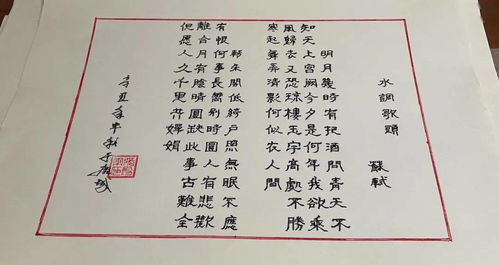 水調歌頭
蘇軾
明月幾時有把酒問青天不
知天上宮闕今夕是何年我欲乘
風歸去又恐瓊樓玉宇高處不勝
寒起舞弄清影何似在人間
朱閣低綺戶照無眠不應
有恨何事長別時圓人有悲歡
離合月有陰晴圓缺此事古難全
但愿人久千里共嬋娟
辛丑年中秋于